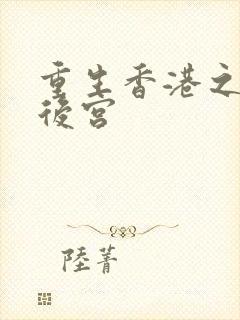 重生香港之
後宮
陸菁